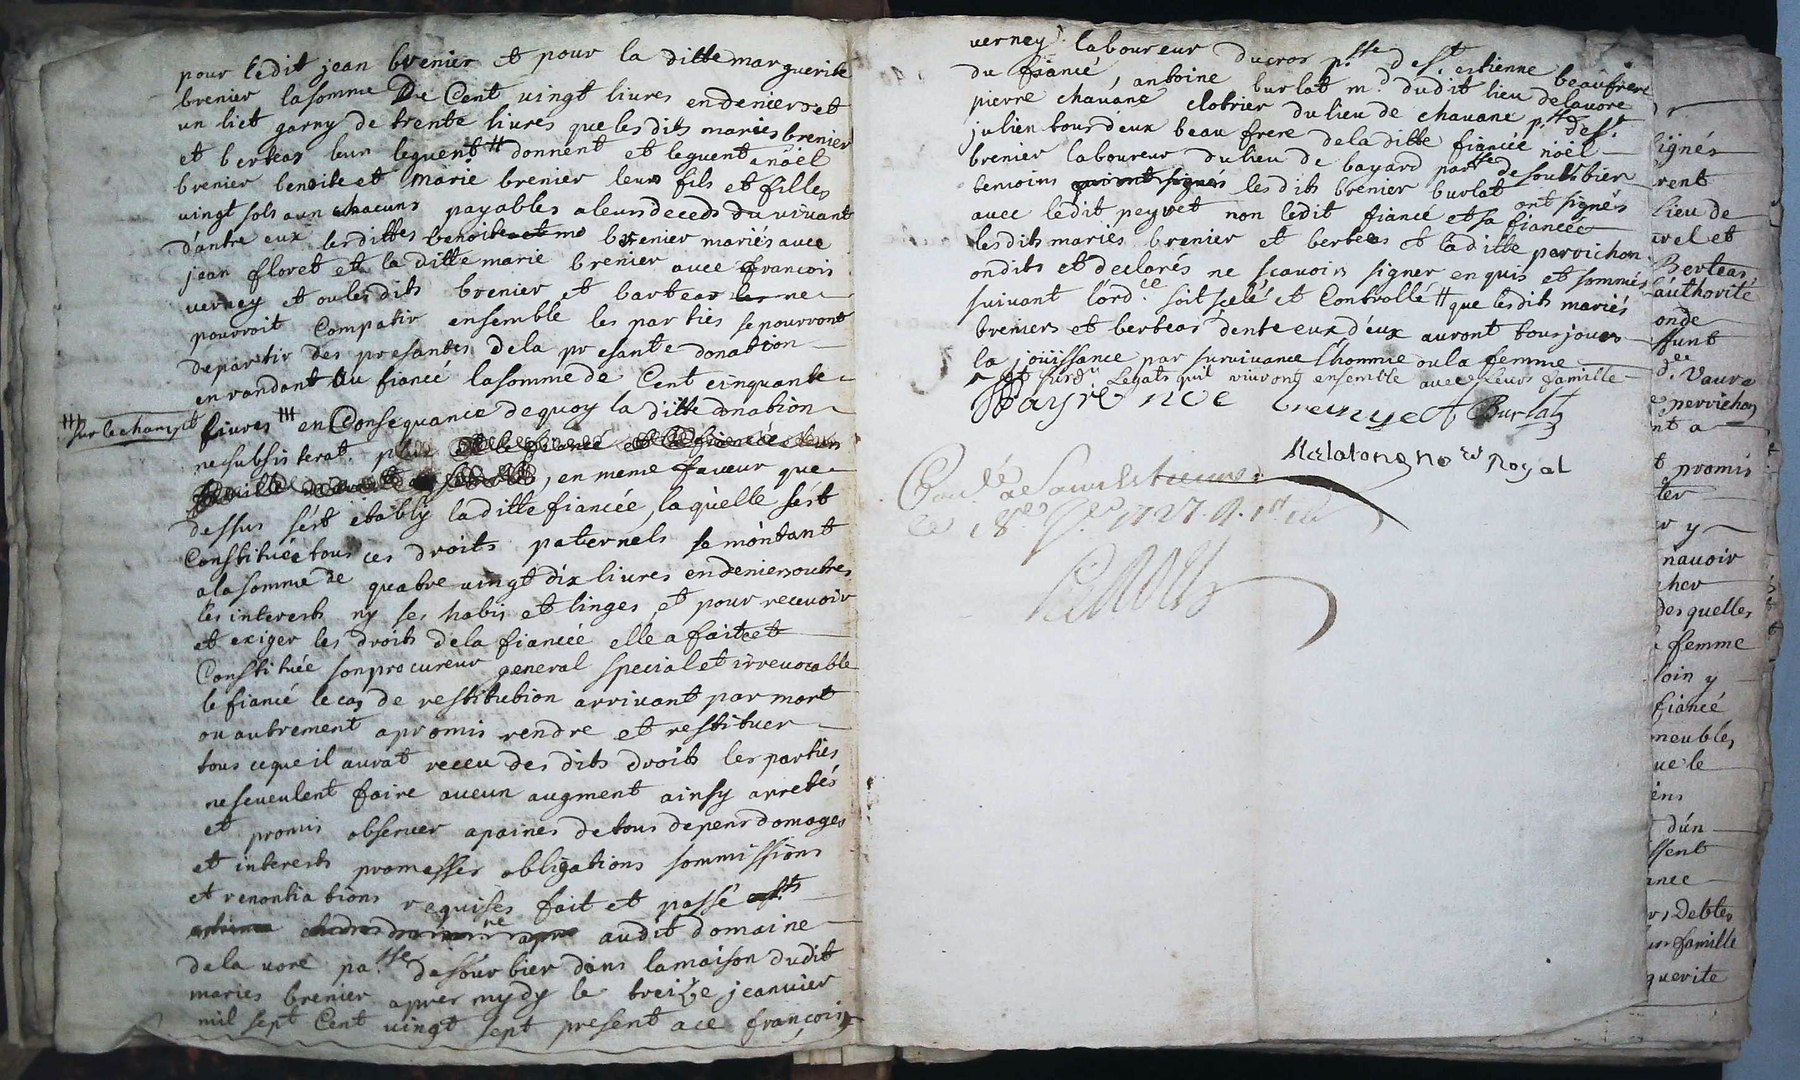 pour ledit jean brenier et pour la ditte marguerite
brenier la somme De Cent vingt livres en deniers et
un lict garny de trente livres que les dits mariés brenier
et berteas leur leguent # donnent et leguent a noël
brenier benoite et marie brenier leurs fils et filles
vingt sols a un chacuns payables a leurs deceds du vivant
d'antre eux les dittes benoite brenier mariés avec
jean floret et la ditte marie brenier avec francois
verney et ou les dits brenier et barteas ne
pourroit Compatir ensemble les parties se pourront
departir des presantes de la presante donation
en randant au fiancé la somme de Cent cinquante
## sur le champ
livres ## en Consequance de quoy la ditte donation
ne subsisterat plus
en meme faveur que
dessus s'est etably la ditte fiancée, laquelle s'est
Constituée tous ces droits paternels se montant
a la somme de quatre vingt dix livres en deniers outres
les interests ny ses habis et linges et pour recevoir
et exiger les droits de la fiancée elle a fait et
Constituée son procureur general special et irrevocable
le fiancé le cas de restitution arrivant par mort
ou autrement a promis rendre et restituer
tous ce que il aurat receu des dits droits les parties
ne se veulent faire aucun augment ainsy arretés
et promis observer a paines de tous depens domages
et interests promesses obligations sommissions
et renontiations requises fait et passé
audit domaine
de la voré pa.sse de sourbier dans la maison dudit
mariés brenier apres mydy le treize jeanvier
mil sept Cent vingt sept present a ce françois
verney laboureur ducros p.sse de s.t estienne beaufrere
du fiancé, antoine burlat m.d dudit lieu de lavore
pierre chavane clotrier du lieu de chavane p.sse de s.t
julien tous deux beau frere de la ditte fiancée noël
brenier laboureur du lieu de bayard par.sse de sourbier
temoins les dits brenier burlat ont signés
avec ledit peyret non ledit fiancé et sa fiancée
les dits mariés brenier et berteas et la ditte perrichon
ondits et declarés ne sçavoirs signer enquis et sommés
suivant l'ord.ce soit scelé et Controllé # que les dits mariés
breniers et berteas d'entr eux d'eux auront tousjours
la joüissance par survivance l'homme ou la femme
Legats qu'il vivront ensemble avec Leurs famille
Burlat
Royal
1727
ignés
rent
lieu de
vel et
Berteas
authorité
onde
ssunt
Vaure
perrichon
nt a
promis
ter
y
navoir
cher
desquelles
femme
loin y
fiancé
meubles
ue le
ens
d'un
ssent
ance
debtes
famille
guerite